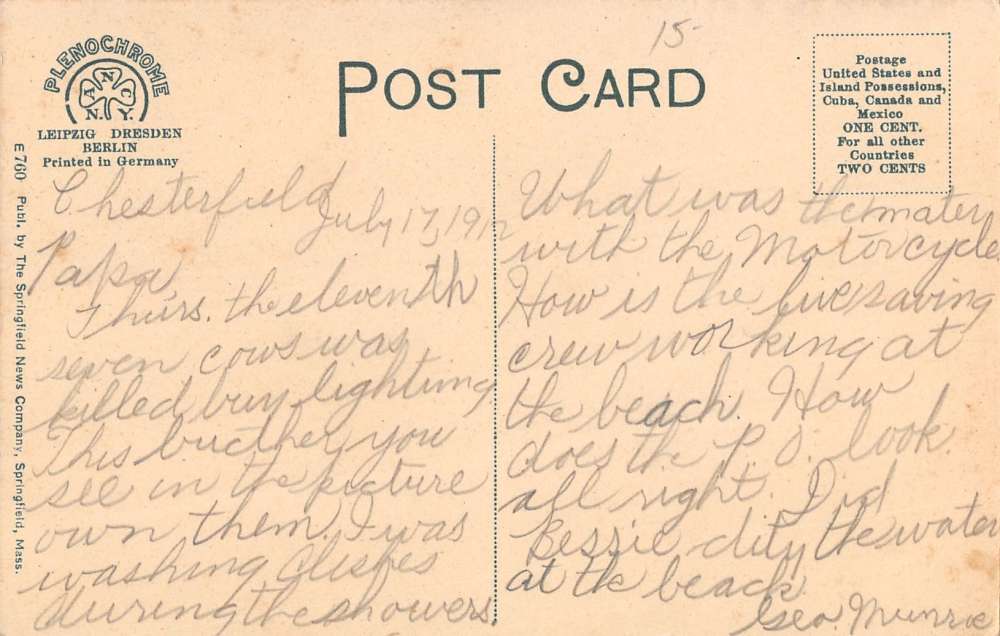 15-
PLENOCHROME
N. A. N. C. Y.
LEIPZIG DRESDEN
BERLIN
Printed in Germany
POST CARD
Postage
United States and
Island Possessions,
Cuba, Canada and
Mexico
ONE CENT.
For all other
Countries
TWO CENTS
E 760 Publ. by The Springfield News Company, Springfield, Mass.
Chesterfield
July 17, 1912
Papa,
Thurs. the eleventh
seven cows was
killed buy lighting
This bucther you
see in the picture
own them. I was
washing dishes
during the showers.
What was the mater
with the Motorcycle
How is the livesaving
crew working at
the beach. How
does the P.O. look.
all right. Did
Bessie dity the water
at the beach
Geo. Munroe